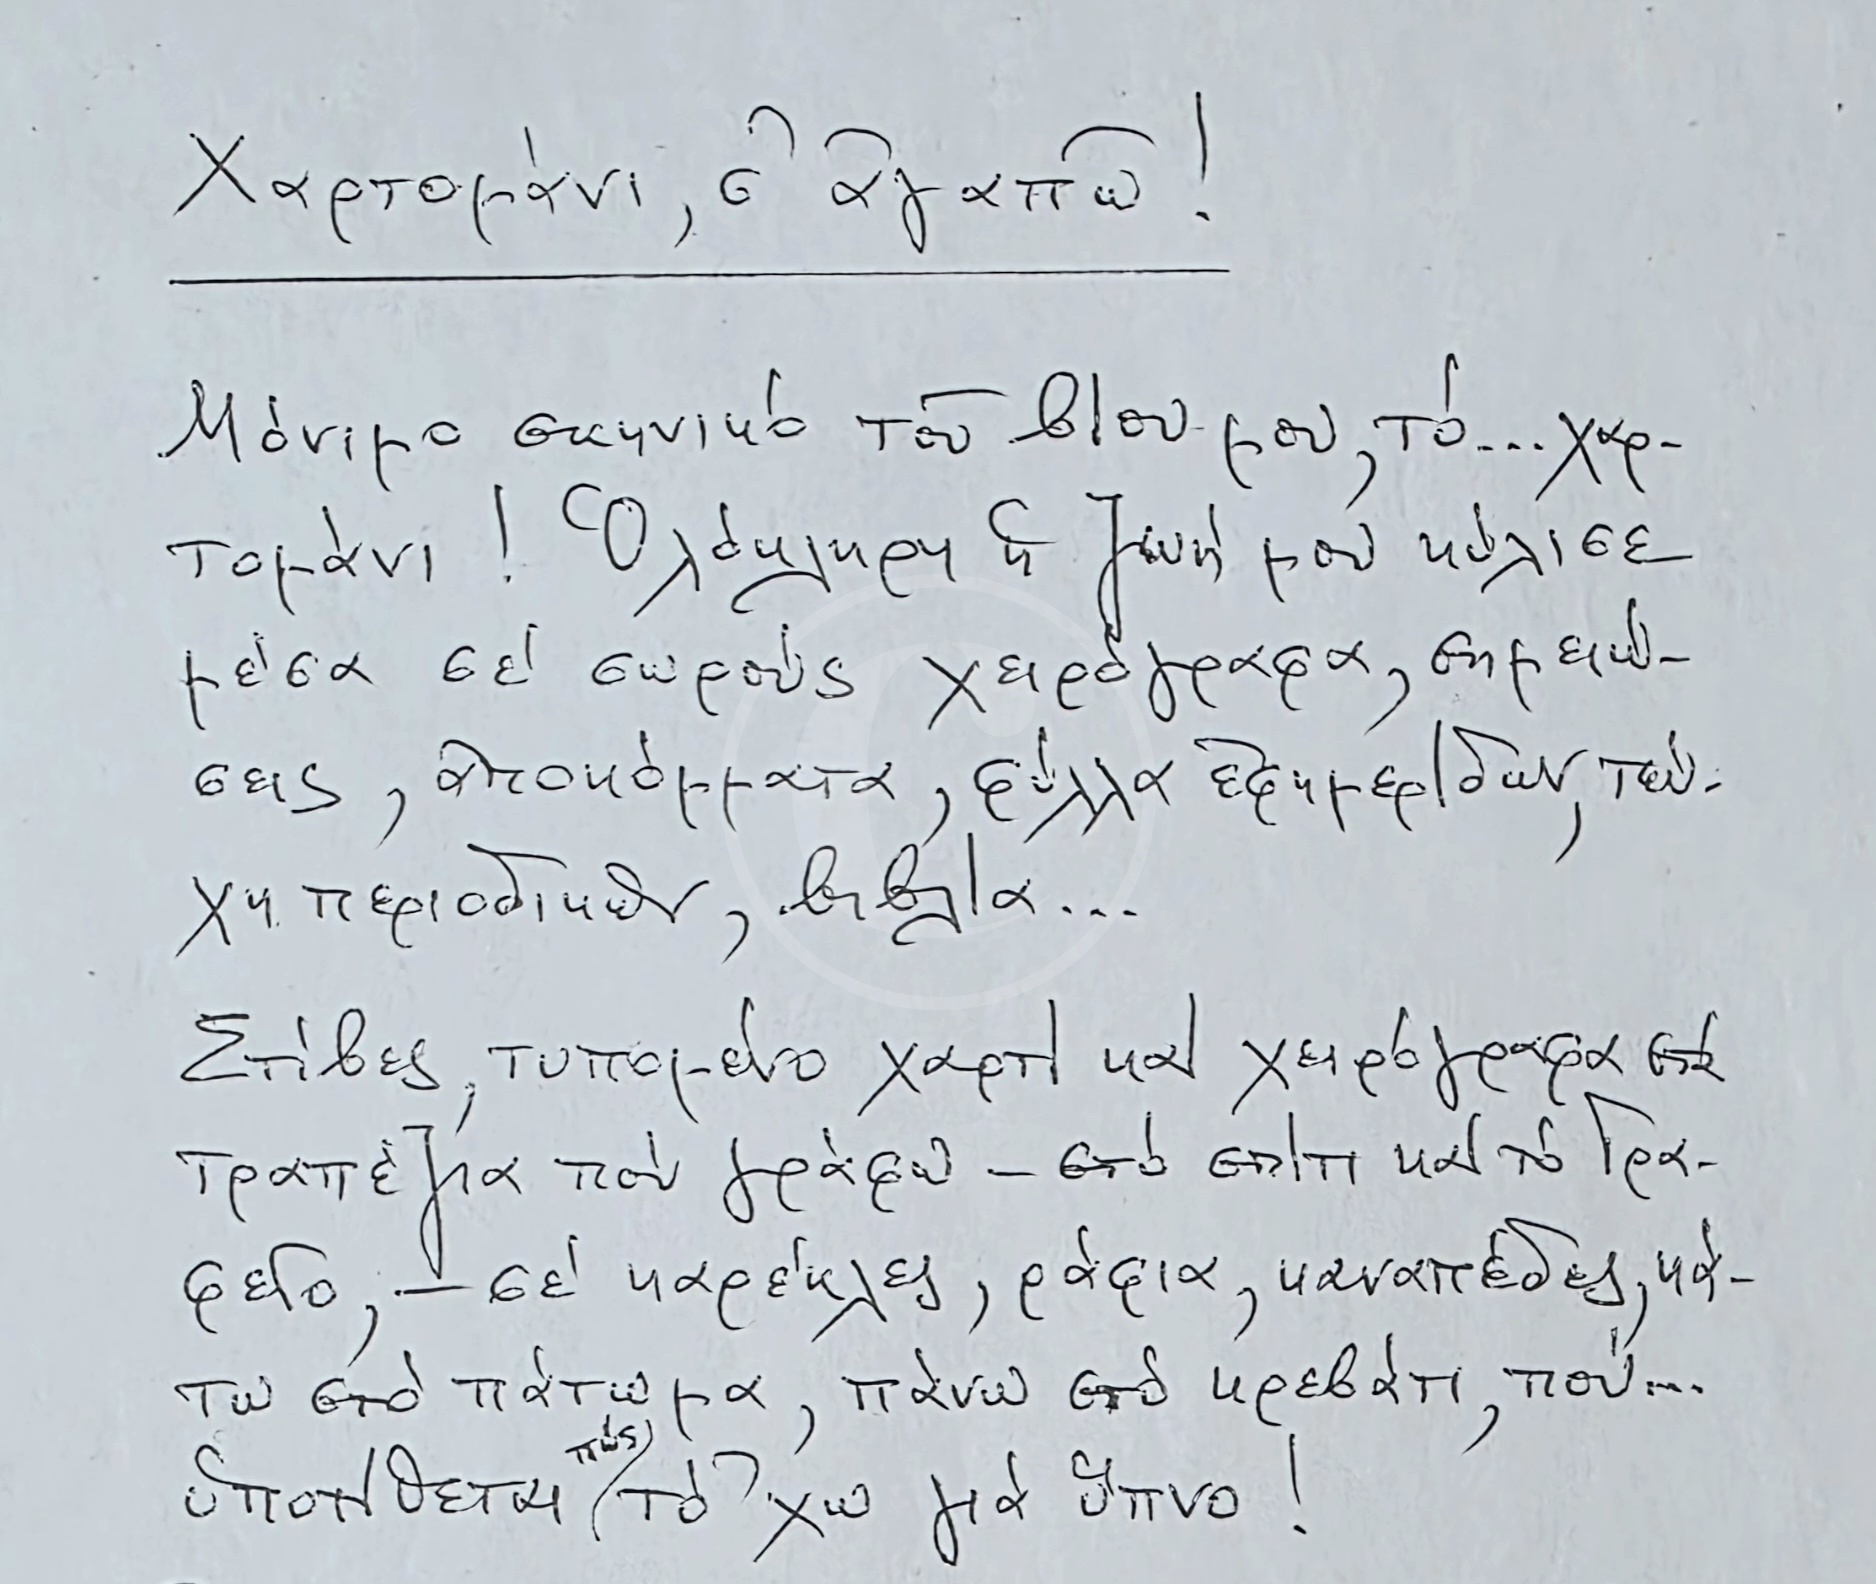 Χαρτομάνι, σ᾿ ἀγαπῶ!
Μόνιμο σκηνικό τοῦ βίου μου, τό... χαρ-
τομάνι! Ὁλόκληρη ἡ ζωή μου κύλισε
μέσα σέ σωρούς χειρόγραφα, σημειώ-
σεις, ἀποκόμματα, φύλλα ἐφημερίδων, τεύ-
χη περιοδικῶν, βιβλία...
Στίβες, τυπομένο χαρτί καί χειρόγραφα στά
τραπέζια πού γράφω – στό σπίτι καί τό Γρα-
φεῖο, – σέ καρέκλες, ράφια, καναπέδες, κά-
τω στό πάτωμα, πάνω στό κρεβάτι, πού...
ὑποτίθεται πώς τό ᾿χω γιά ὕπνο!